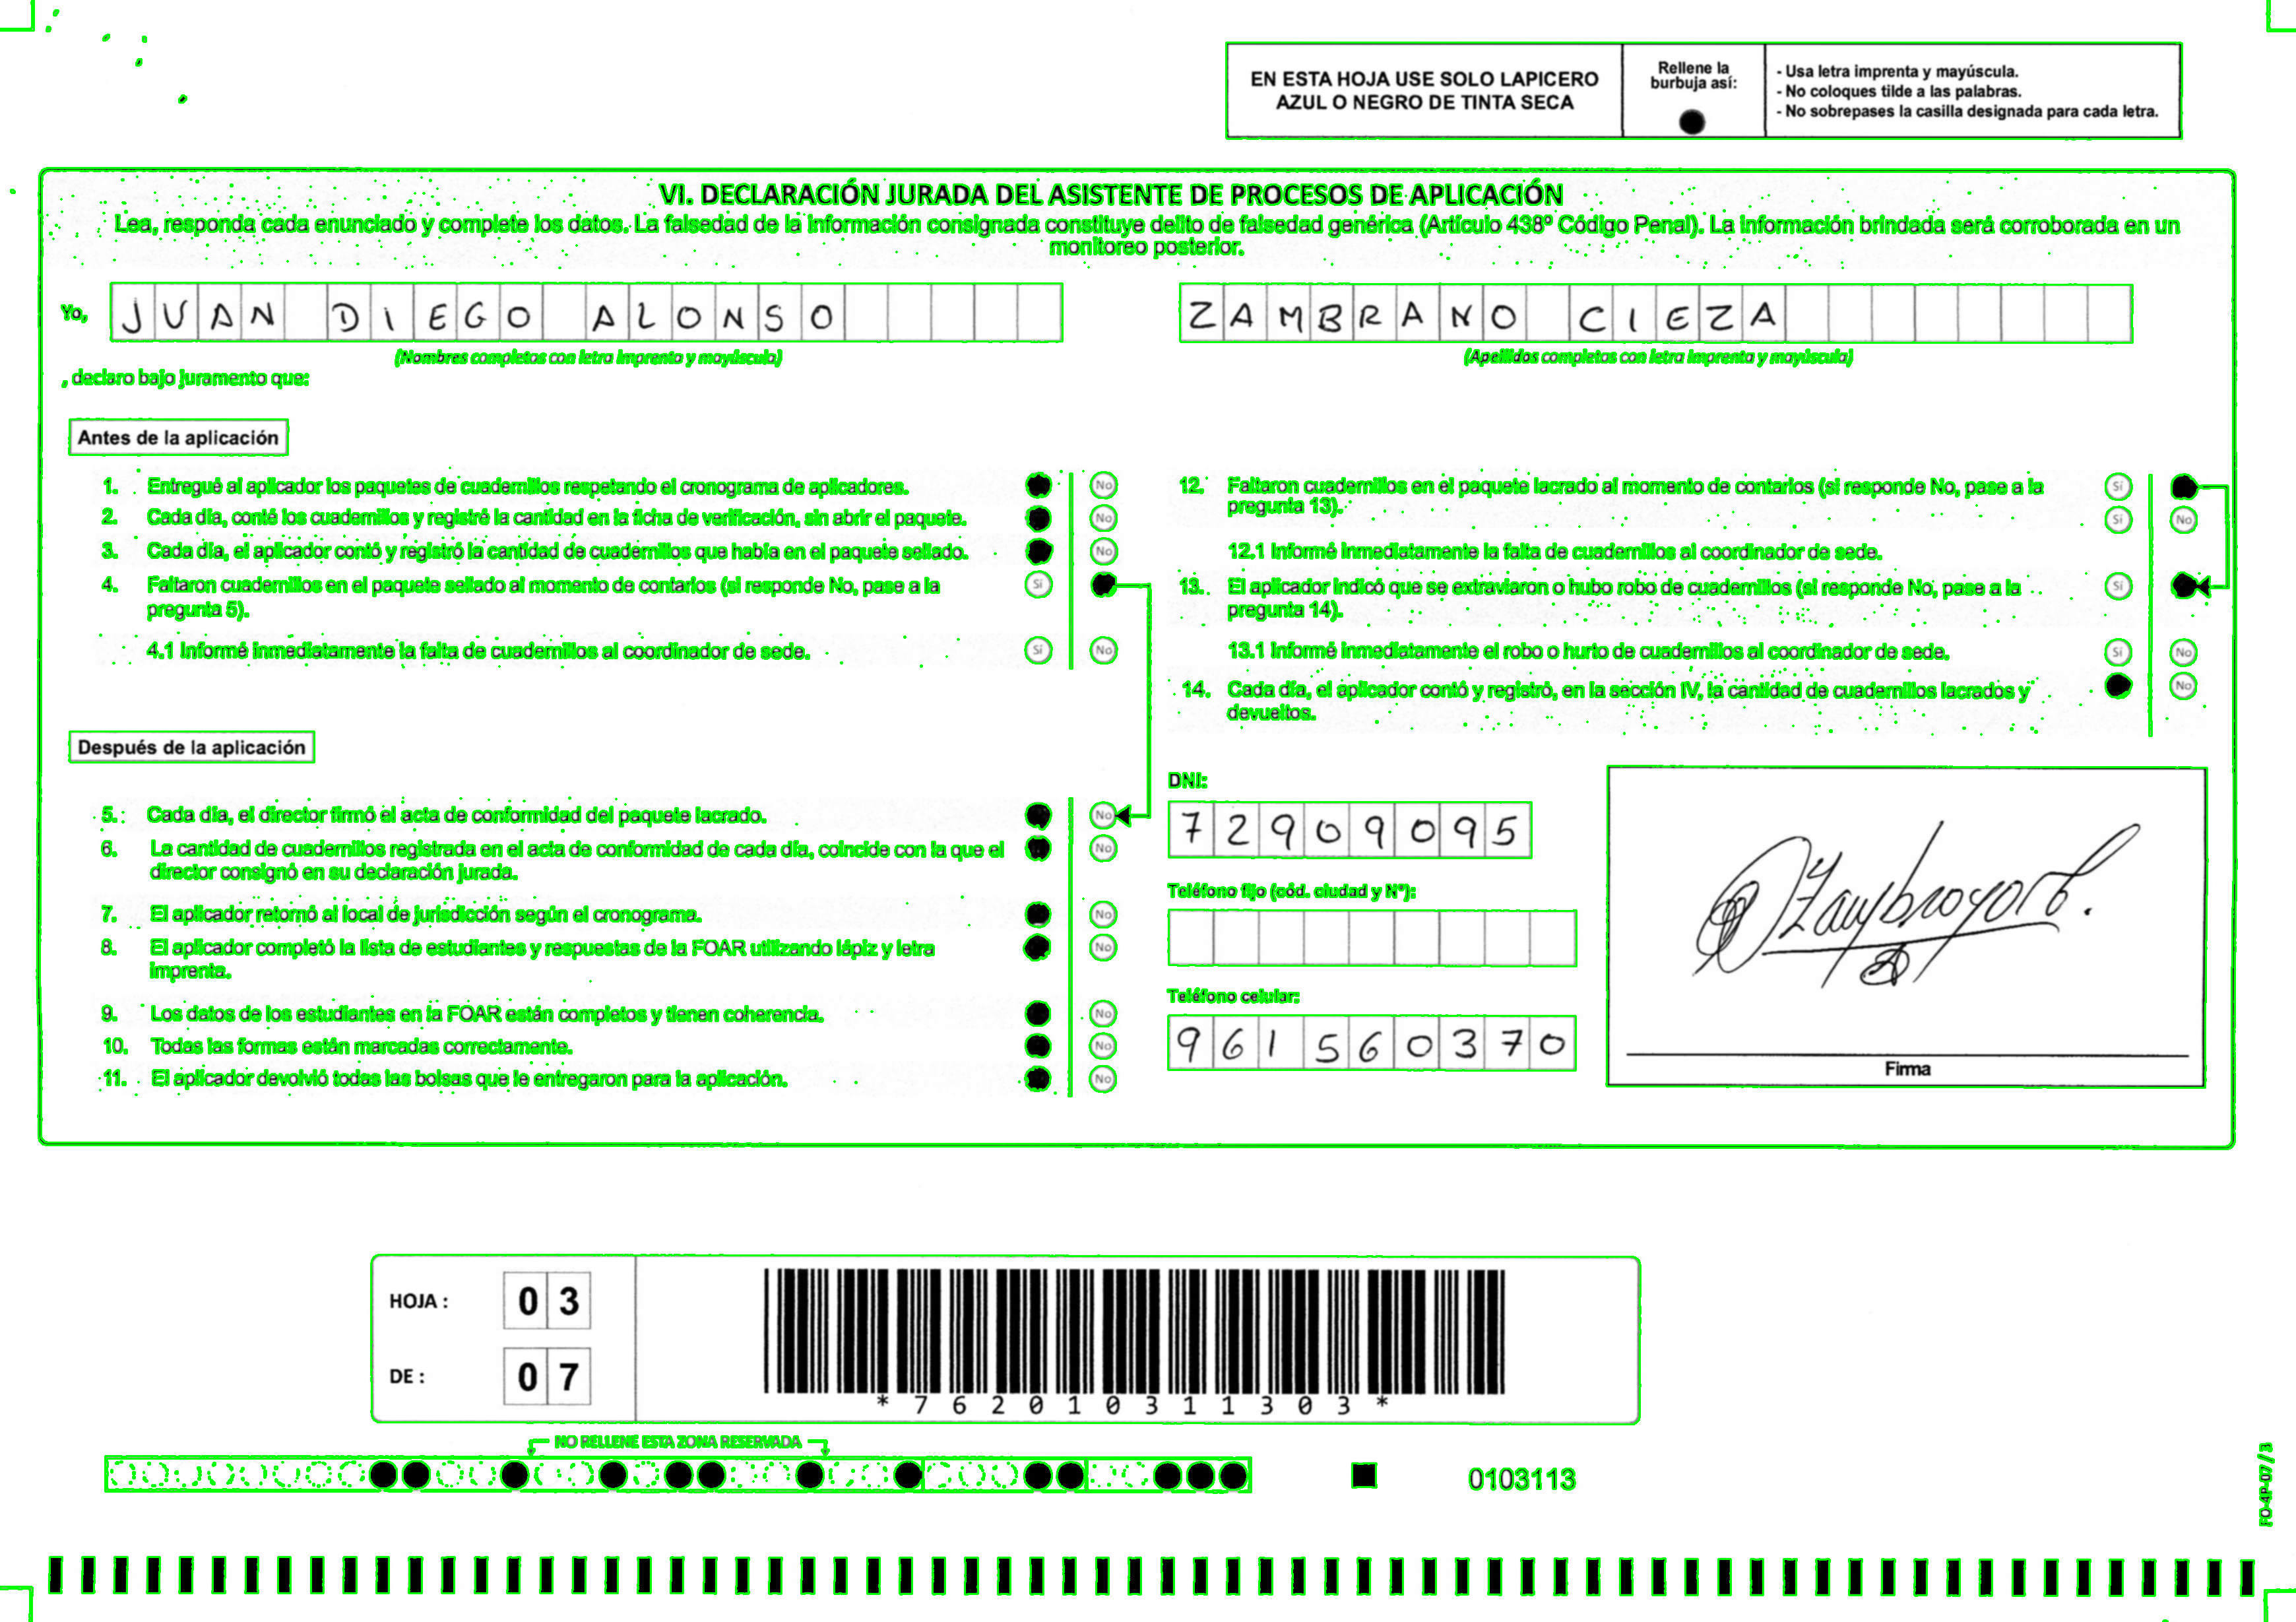 EN ESTA HOJA USE SOLO LAPICERO
AZUL O NEGRO DE TINTA SECA
Rellene la
burbuja así:
- Usa letra imprenta y mayúscula.
- No coloques tilde a las palabras.
- No sobrepases la casilla designada para cada letra.
VI. DECLARACIÓN JURADA DEL ASISTENTE DE PROCESOS DE APLICACIÓN
Lea, responda cada enunciado y complete los datos. La falsedad de la información consignada constituye delito de falsedad genérica (Artículo 438º Código Penal). La información brindada será corroborada en un
monitoreo posterior.
Yo, JUAN DIEGO ALONSO ZAMBRANO CIEZA
(Nombres completos con letra imprenta y mayúscula)
(Apellidos completos con letra imprenta y mayúscula)
, declaro bajo juramento que:
Antes de la aplicación
1. Entregué al aplicador los paquetes de cuadernillos respetando el cronograma de aplicadores. No
2. Cada día, conté los cuadernillos y registré la cantidad en la ficha de verificación, sin abrir el paquete. No
3. Cada día, el aplicador contó y registró la cantidad de cuadernillos que había en el paquete sellado. No
4. Faltaron cuadernillos en el paquete sellado al momento de contarlos (si responde No, pase a la Sí
pregunta 5).
4.1 Informé inmediatamente la falta de cuadernillos al coordinador de sede. Sí No
Después de la aplicación
5. Cada día, el director firmó el acta de conformidad del paquete lacrado. No
6. La cantidad de cuadernillos registrada en el acta de conformidad de cada día, coincide con la que el No
director consignó en su declaración jurada.
7. El aplicador retornó al local de jurisdicción según el cronograma. No
8. El aplicador completó la lista de estudiantes y respuestas de la FOAR utilizando lápiz y letra No
imprenta.
9. Los datos de los estudiantes en la FOAR están completos y tienen coherencia. No
10. Todas las formas están marcadas correctamente. No
11. El aplicador devolvió todas las bolsas que le entregaron para la aplicación. No
12. Faltaron cuadernillos en el paquete lacrado al momento de contarlos (si responde No, pase a la Sí
pregunta 13). Sí No
12.1 Informé inmediatamente la falta de cuadernillos al coordinador de sede.
13. El aplicador indicó que se extraviaron o hubo robo de cuadernillos (si responde No, pase a la Sí
pregunta 14).
13.1 Informé inmediatamente el robo o hurto de cuadernillos al coordinador de sede. Sí No
14. Cada día, el aplicador contó y registró, en la sección IV, la cantidad de cuadernillos lacrados y No
devueltos.
DNI:
72909095
Teléfono fijo (cód. ciudad y Nº):
Teléfono celular:
961560370
Firma
HOJA : 03
DE : 07
*762010311303*
NO RELLENE ESTA ZONA RESERVADA
0103113
FO-4P-07/3